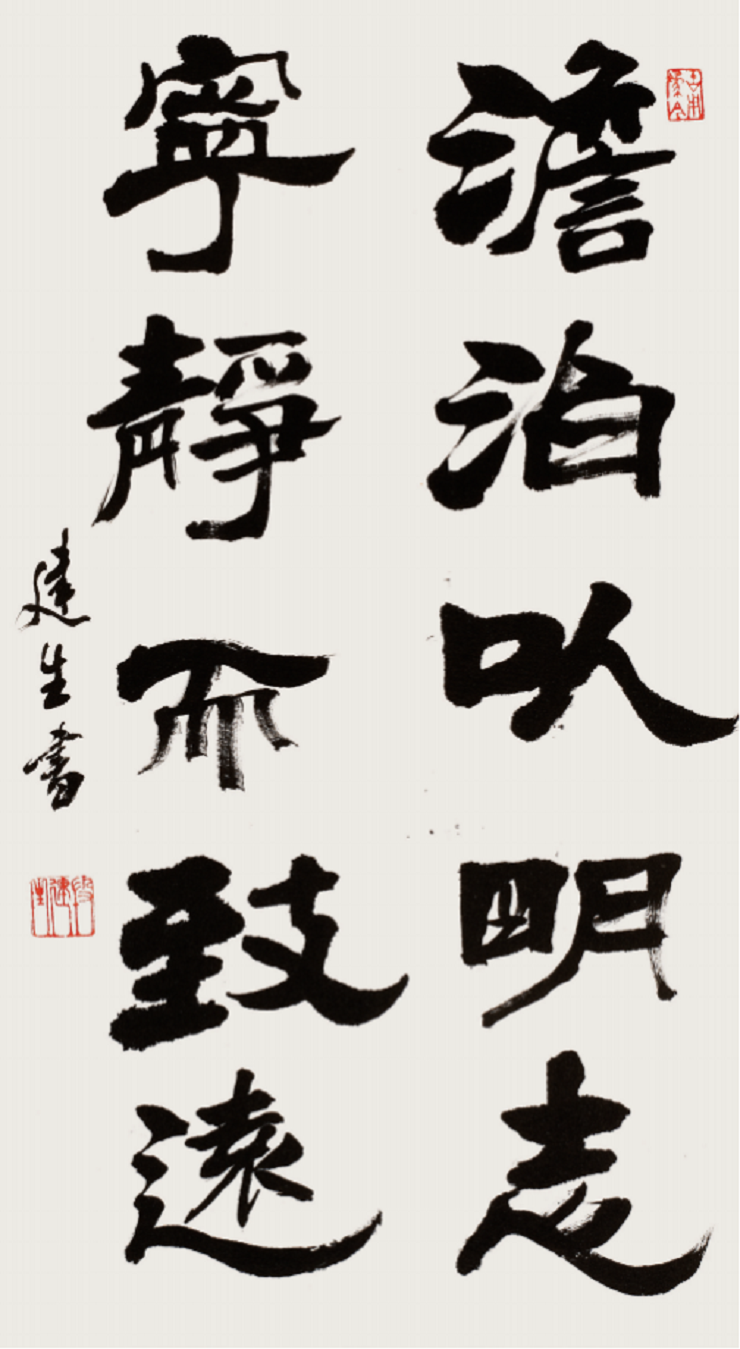 澹泊以明志
寧靜而致遠
建生書